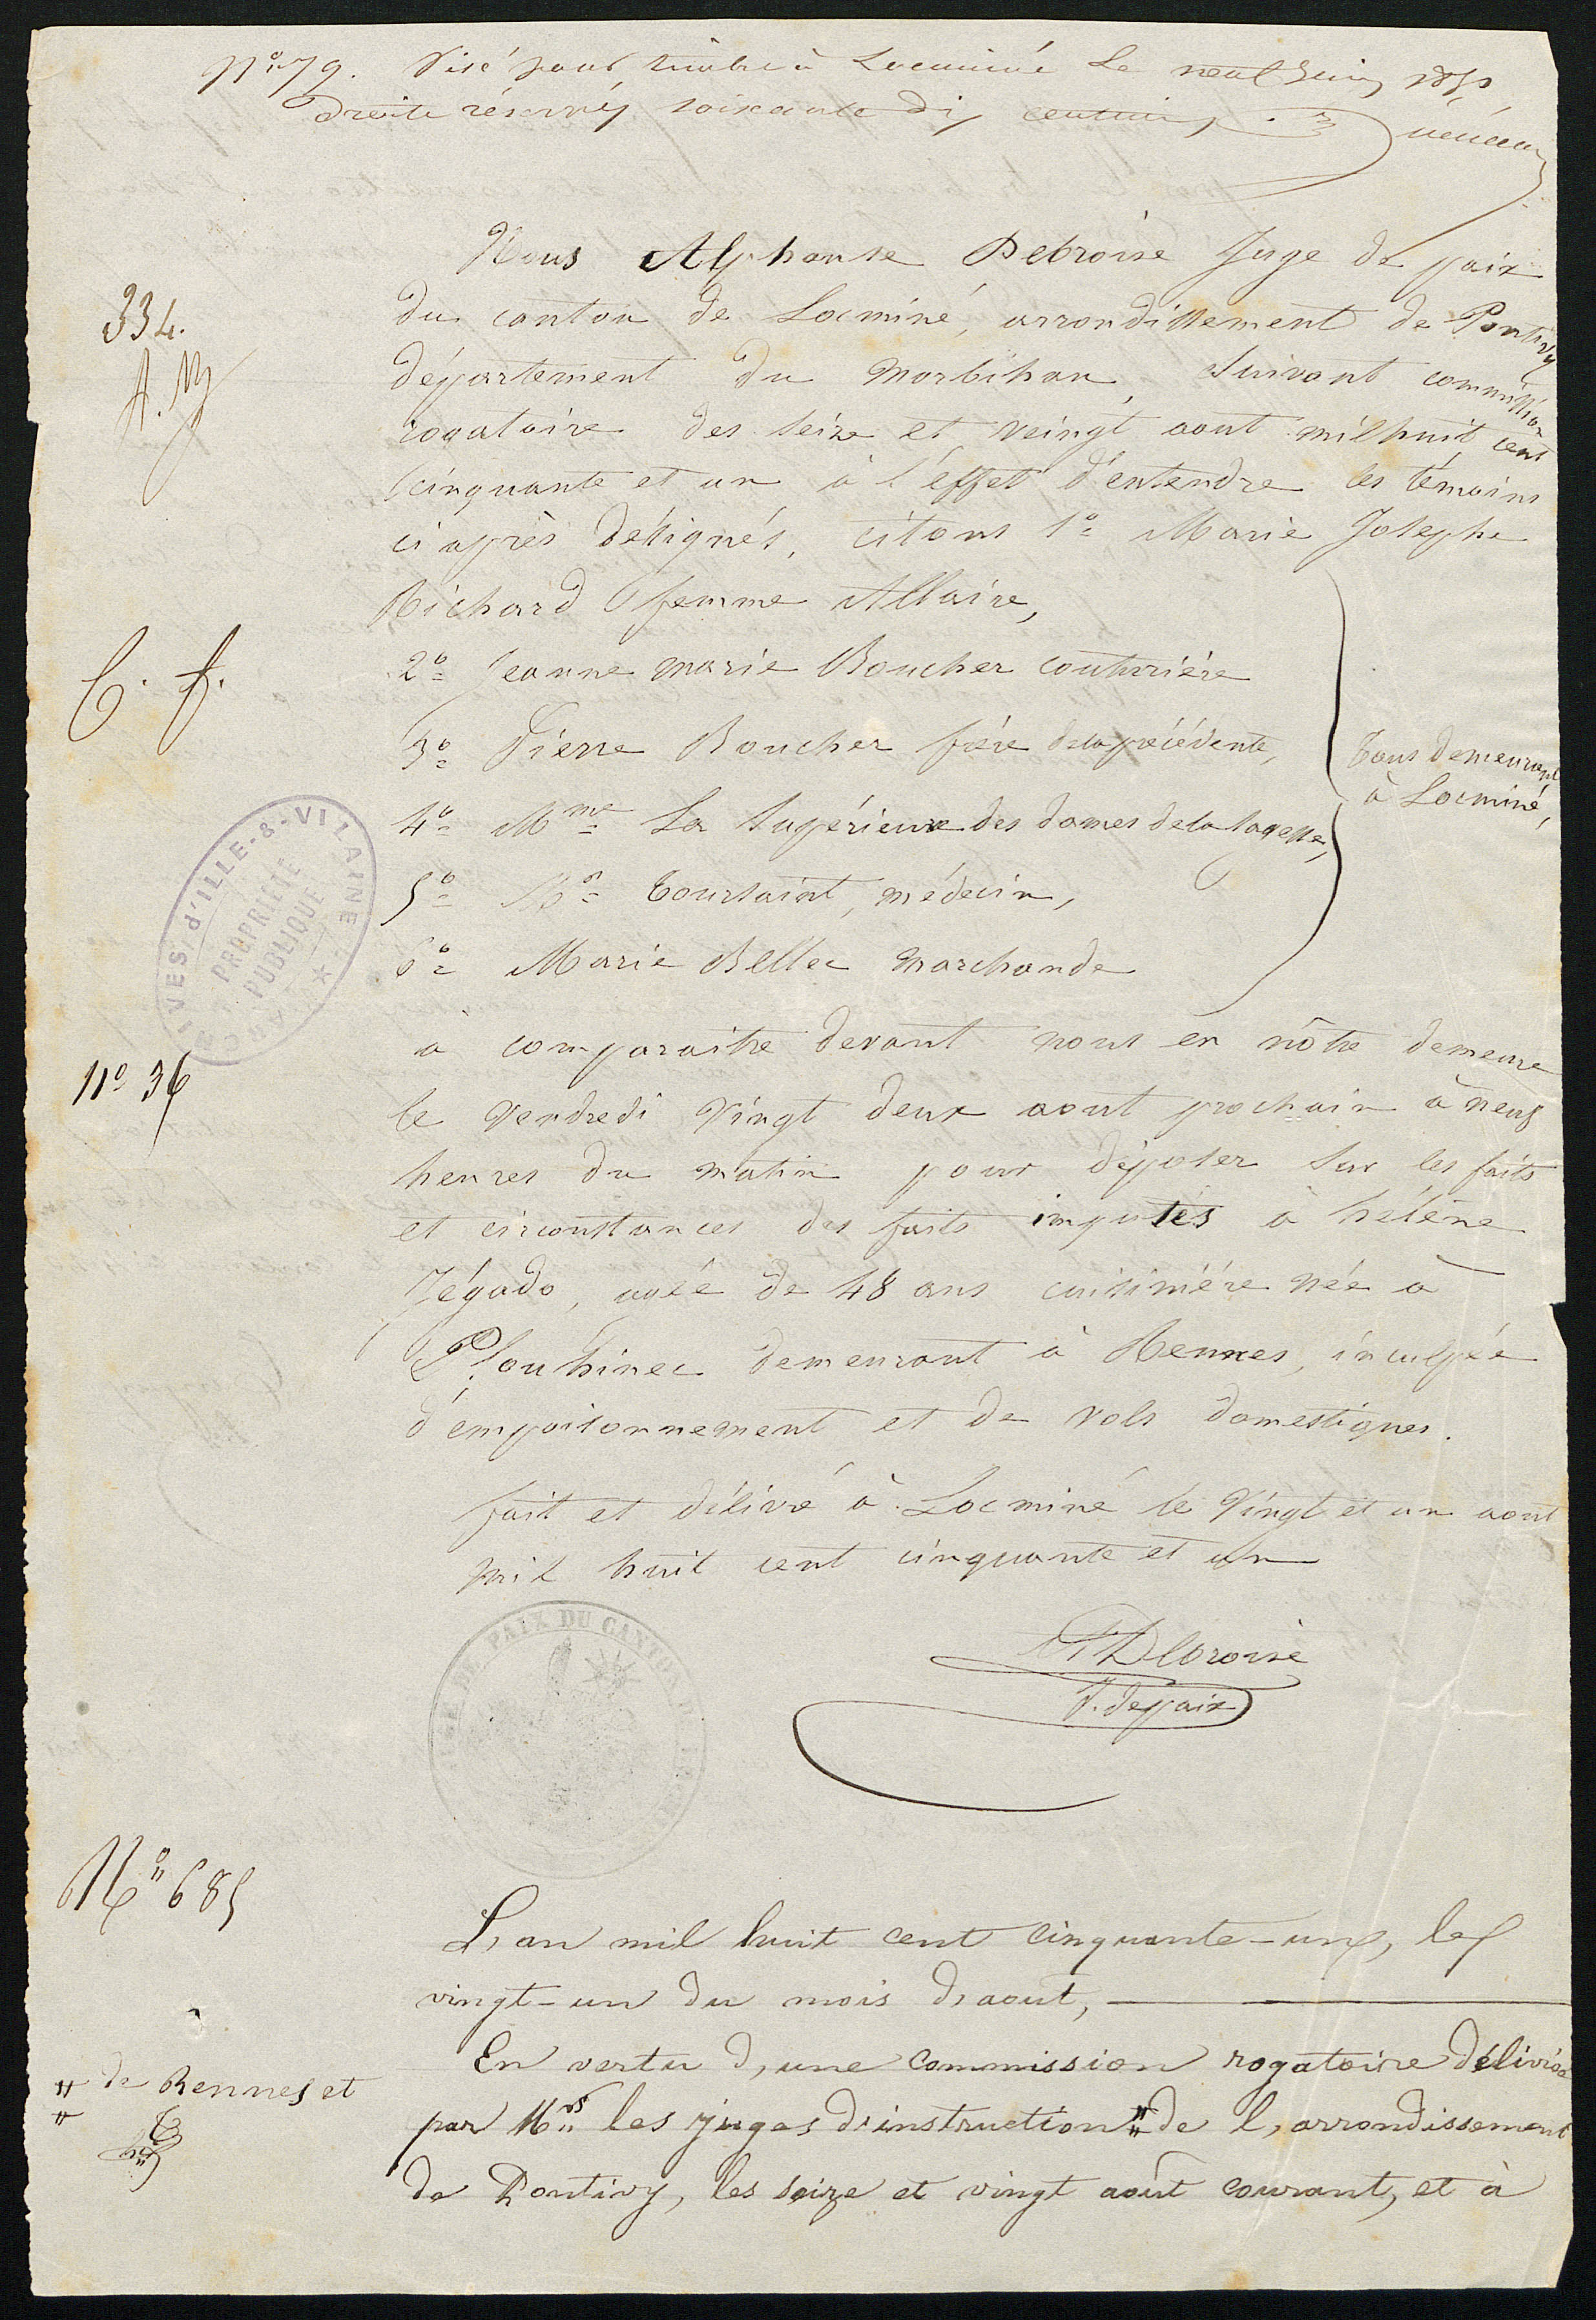 N° 79. Visé pour timbre à Locminé Le neuf Juin 185
Droits réservés soixante dix centimes.
Nous Alphonse Debroise Juge de paix
du canton de Locminé, arrondissement de Pontivy
département du Morbihan, suivant commission
rogatoire des seize et veingt aout mil huit cent
cinquante et un à l'effet d'entendre les témoins
ci après désignés, citons 1° Marie Josephe
Richard femme Allaire,
2° Jeanne Marie Boucher couturrière
3° Pierre Boucher frère de la précédente,
4° Mme La Supérieure des dames de la sagesse,
5° Mr Toursaint, médecin,
6° Marie Bellec marchande
Tous demeurant
à Locminé,
à comparaitre devant nous en nôtre demeure
le vendredi vingt deux aout prochain à neuf
heures du matin pour déposer sur les faits
et circonstances des faits imputés à hélène
Jégado, agée de 48 ans cuisinière née à
Plouhinec demeurant à Rennes, inculpée
d'empoisonnement et de vols domestiques.
fait et délivré à Locminé le vingt et un aout
mil huit cent cinquante et un
A Debroise
J. de paix
L'an mil huit cent cinquante-un, le
vingt-un du mois d'aout,
En vertu d'une commission rogatoire délivrée
par Mrs les juges d'instruction " de l'arrondissement
de Pontivy, les seize et vingt août courant, et à
334.
A. M
C. f.
ARCHIVES d'ILLE-&-VILAINE
PROPRIÉTÉ
PUBLIQUE
N° 36
PAIX DU CANTON
N° 685
" de Rennes et